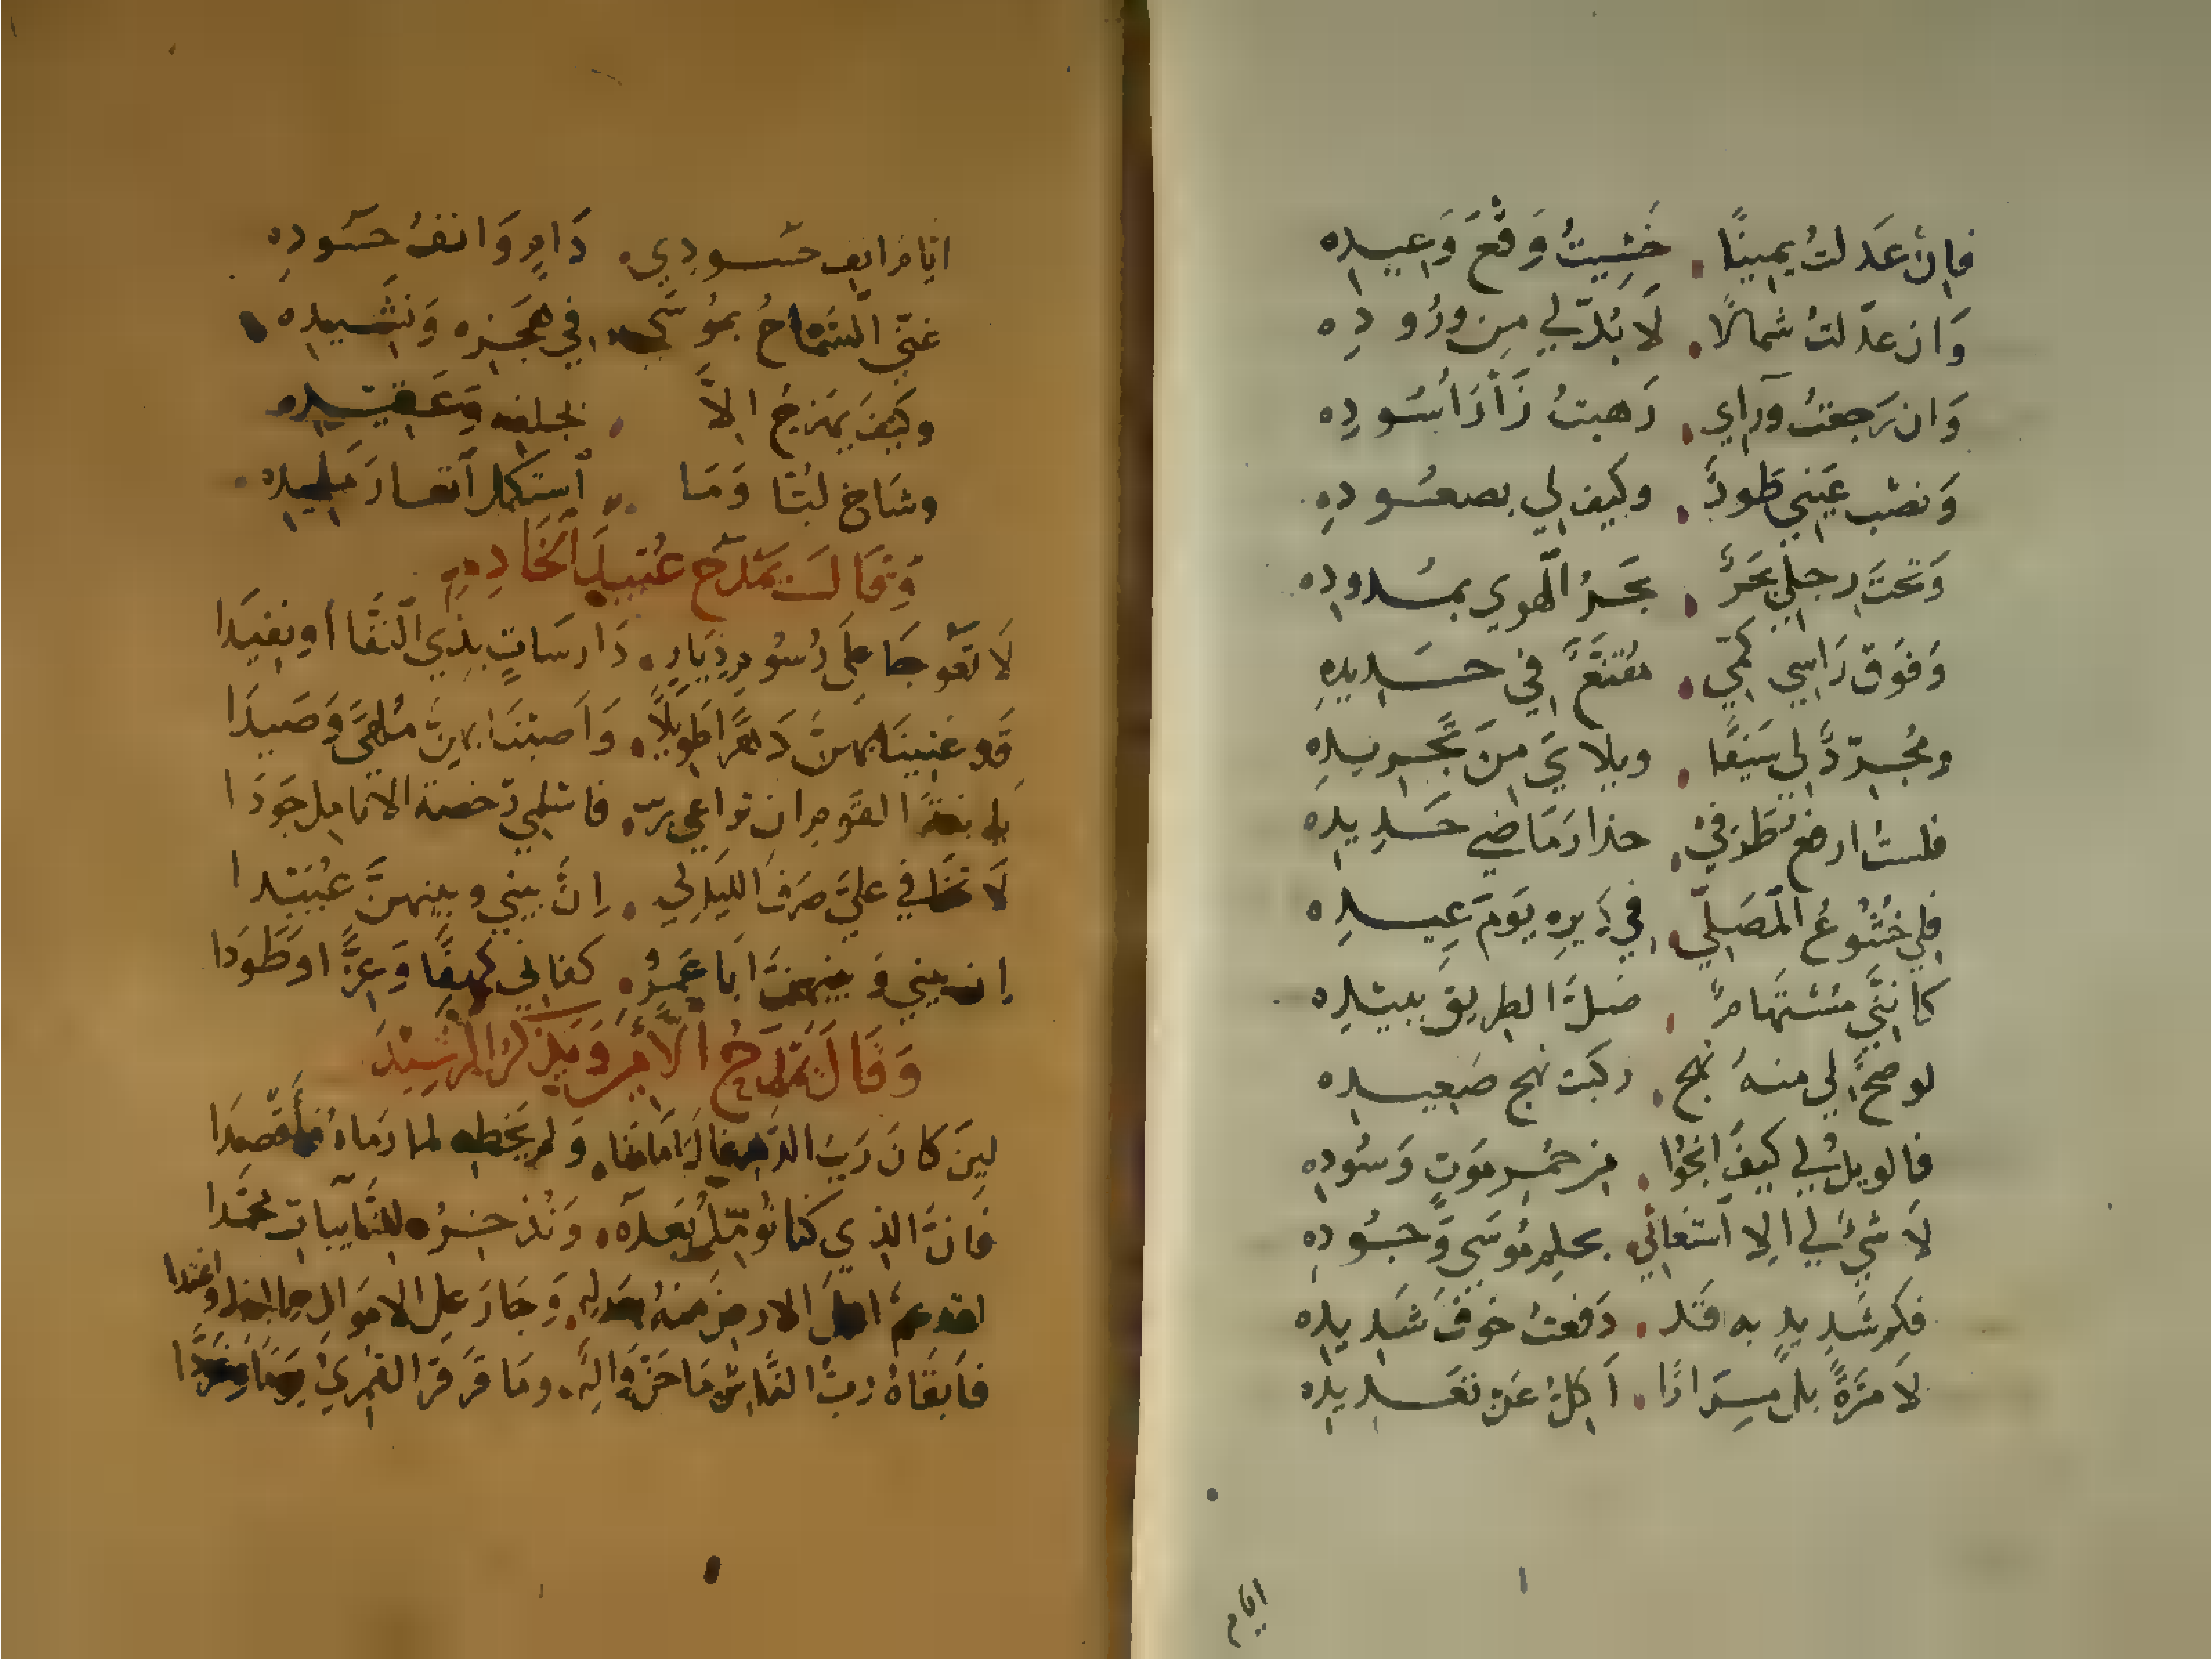 فَاِنْ عَدَلتُ يمينًا . خَشِيتُ وَقْعَ وَعيدِه
وَان عدَلتُ شمالًا . لَا بُدّ لي مِن ورُودِه
وَان رَجعتُ ورَاي . رَهبتُ زَأرَ أُسُودِه
وَنصْب عَيني طَودٌ . وكيف لي بصعُودِه
وَتحتَ رجلي بَحرٌ . يَجرُ الهوي بمدُودِه
وَفوَق رَاسِي كميّ . مقنّعٌ في حَديدِه
ومُجرّدٌ لي سَيفًا . وبلاءيَ مِنَ تَجريدِه
فلستُ ارفع طَرفي . حذارَ مَاضي حَديدِه
فلي خُشُوعُ المُصَلّي . في دَيرِه يَومَ عِيدِه
كأننّي مُسْتهَامٌ . ضلَّ الطريقَ ببيدِه
لو صحّ لي منهُ نهج . ركبت نهج صَعيدِه
فالويلُ لي كيفَ انجُوا . من حُمر مَوتٍ وَسُودِه
لَا شيَ لي الا استغاثي . بحلم مُوسَى وَجُودِه
فكم شَديدٍ به قَد . دَفعتُ خوفَ شَديدِه
لَا مَرّةً بل مِرَارًا . اَكلُّ عَن تعَديدِه
ايام
ايّام انف حسُودِي . دَامٍ وَانفُ حسُودِه
غنّى الشمّاخُ بمُوسَى . في هَجَزِه وَنشَيدِه
وكيفَ يمَزجُ الاَّ . بخلفه وَعَقيدِه
وشَاخ لبُنَا وَمَا . استكمل انغارَ وَليدِه
وَقَالَ يَمَدح عُبيدًا الخَادِم
لَا تعُوجَا على رُسُوم دِيَارِ . دَارسَاتٍ بذِي النقَا اوبفيدَا
قَد غنينَا بهنَّ دَهرًا طويلًا . وَاَصبْنَا بهنَّ مَلهىً وَصَيدَا
القوم ان تراعي . فاسلمي رَخصة الانامِل جَودَا
لَا تخافي عليَّ صَرفَ الليَالِي . اِنَّ بيني وبينهنَّ عُبَيْدا
اِن بيني وَبينهنَّ ابَا عَمرٍو . كفاني كهفًا وَعِزًّا وَطَودَا
وَقَالَ يَمَدحُ الاَمِينَ وَيَذكرُ الرشِيْدَ
لئِن كانَ رَيبُ الدَهر غالَ امَامنَا . وَلم يُخطِه لما رَماهُ فاَقصَدَا
فَانَّ الذي كنا نُؤمّلُ بَعدَهُ . وَنُذخرُه للنَّايبَات محمّدا
لقد عمَّ اهلَ الارضِ منهُ بعَدلِه . وَجَارَ علي الاموَال واعتدا
فاَبقَاهُ ربُّ النّاسِ مَا حَنّ وَالِهٌ . ومَا قَرقرَ القُمريُّ يَومًا وَغرّدَا